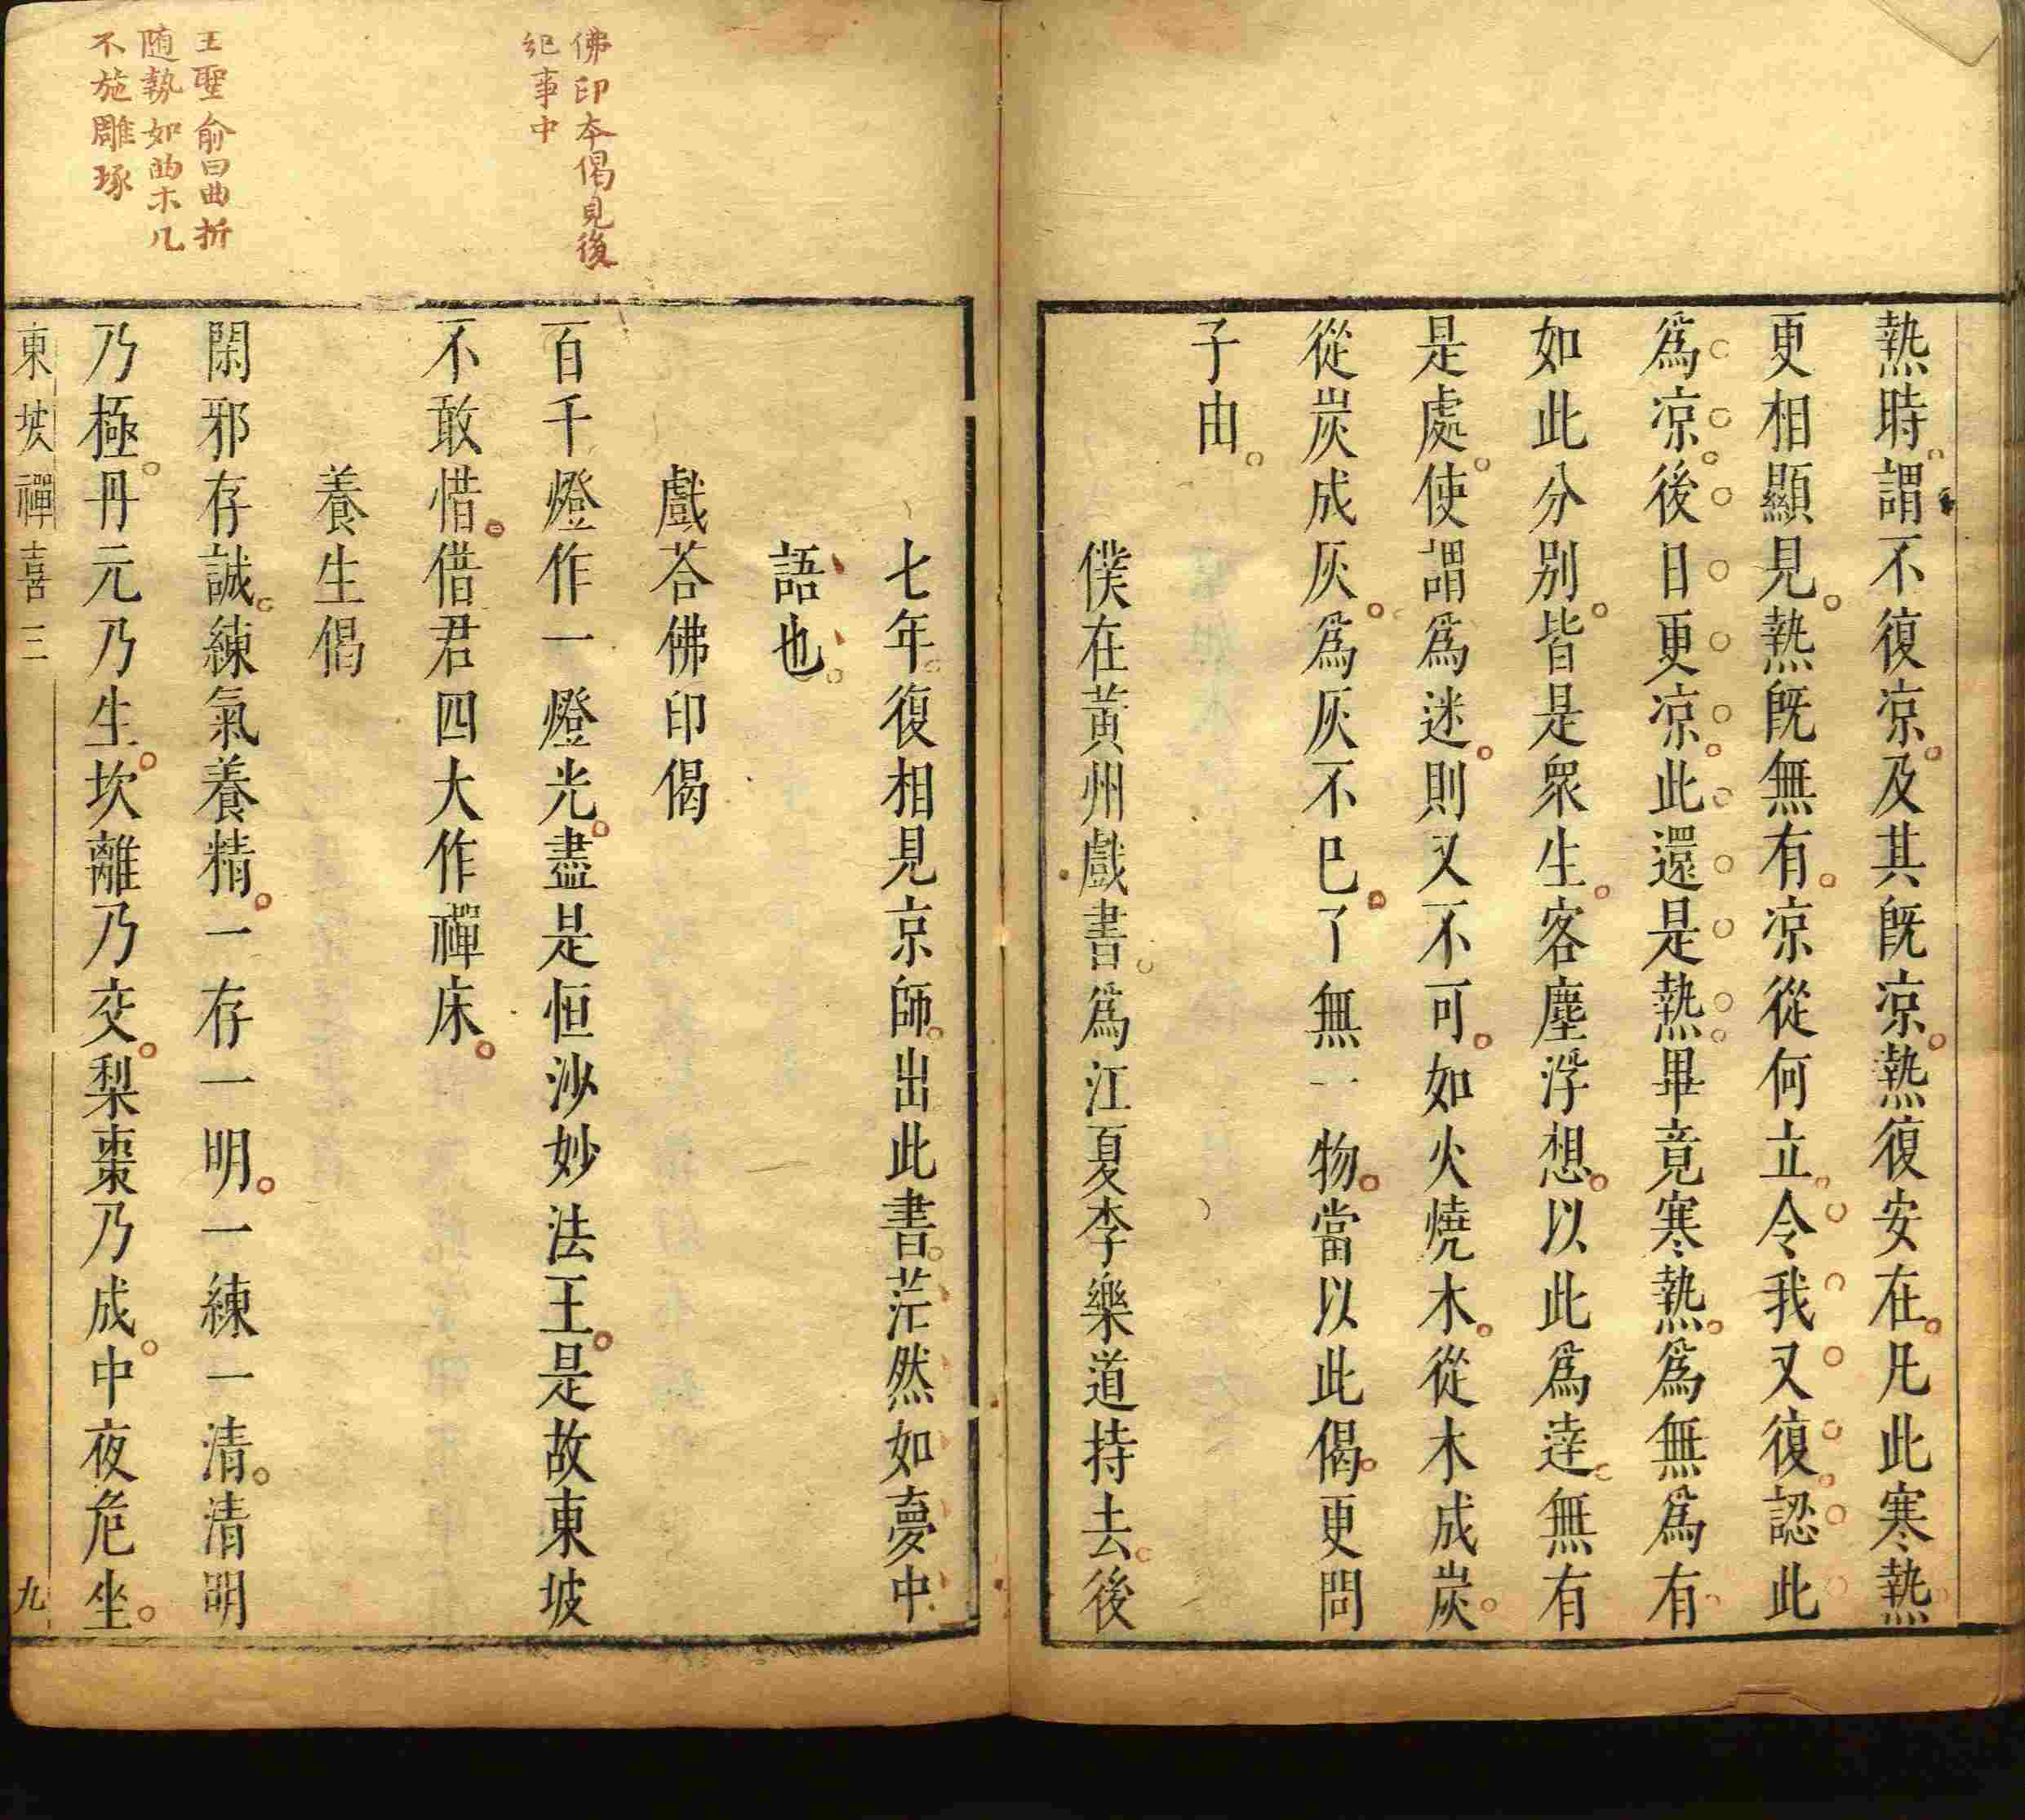 熱時謂不復凉及其旣凉熱復安在凡此寒熱
更相顯見熱旣無有凉從何立令我又復認此
爲凉後日更凉此還是熱畢竟寒熱爲無爲有
如此分別皆是衆生客塵浮想以此爲逹無有
是處使謂爲迷則又不可如火燒木從木成炭
從炭成灰爲灰不巳了無一物當以此偈更問
子由
僕在黃州戲書爲江夏李樂道持去後
七年復相見京師出此書茫然如夢中
語也
戲荅佛印偈
佛印本偈見後
紀事中
百千燈作一燈光盡是恒沙妙法王是故東坡
不敢惜借君四大作禪床
養生偈
王聖俞曰曲折
随勢如曲木几
不施雕琢
閑邪存誠練氣養精一存一明一練一清清明
乃極丹元乃生坎離乃交梨棗乃成中夜危坐
東坡禪喜三 九